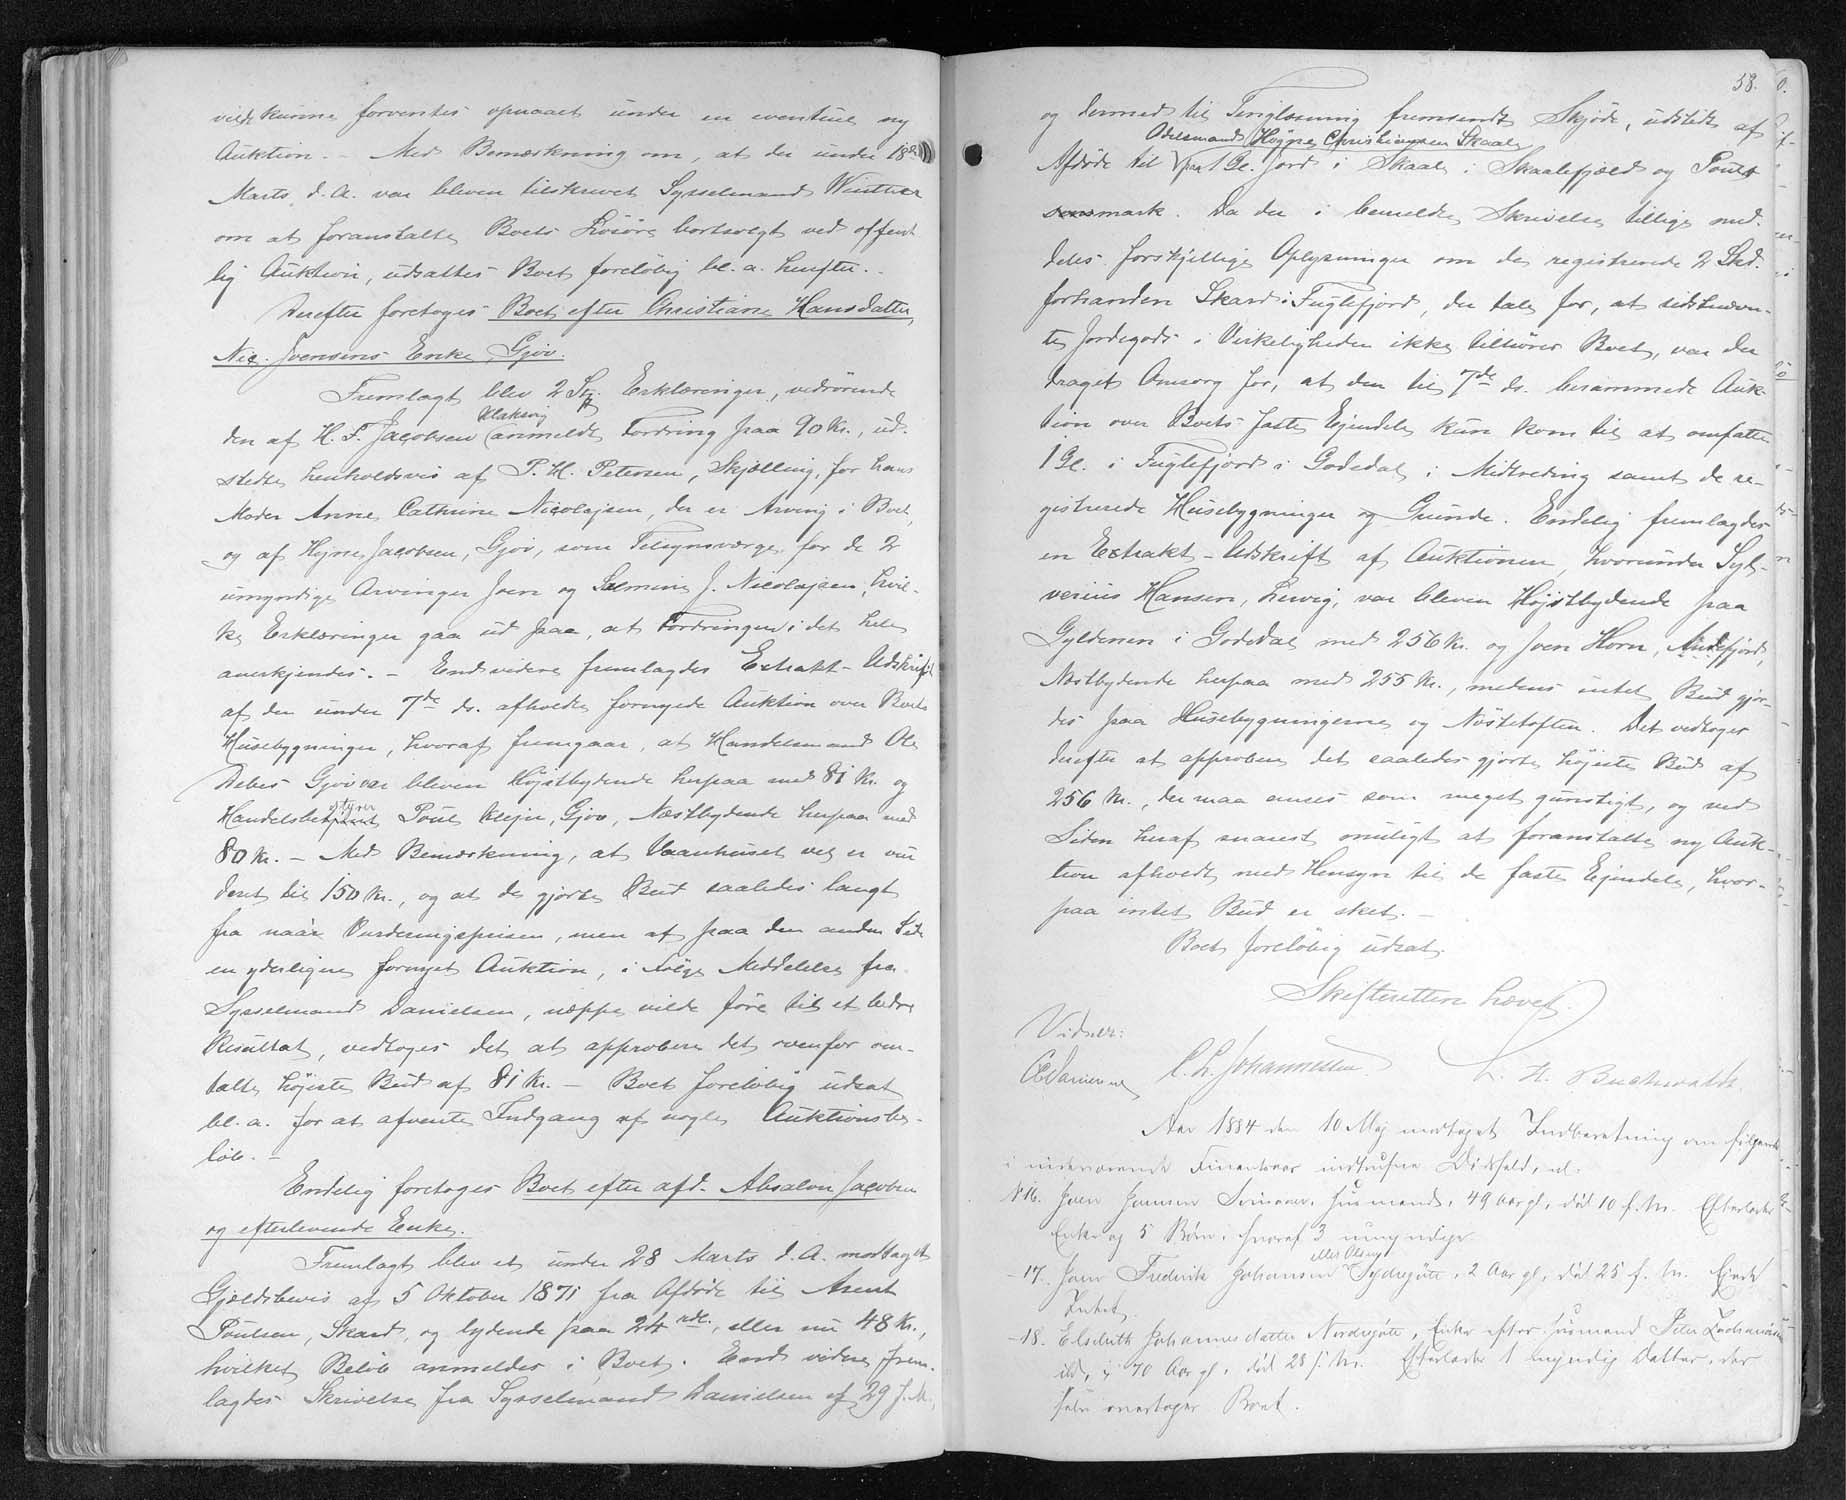 vilde kunne forventes opnaaet under en eventuel ny
Auktion. - Med Bemærkning om, at der under 18de
Marts d. A. var bleven tilskrevet Sysselmand Winther
om at foranstalte Boets Løsøre bortsolgt ved offent-
lig Auktion, udsattes Boet foreløbig bl. a. herefter. -
Derefter foretoges Boet efter Christiane Hansdatter,
Nic. Joensens Enke, Gjov.
Fremlagt blev 2 Stk. Erklæringer, vedrørende
den af H. F. Jacobsen Klaksvig anmeldte Fordring paa 90 Kr., ud-
stedte henholdsvis af P. H. Petersen, Skjelling, for hans
Moder Anne Cathrine Nicolajsen, der er Arving i Boet,
og af Hejne Jacobsen, Gjov, som Tilsynsværge for de 2
umyndige Arvinger Joen og Salmine J. Nicolajsen, hvil-
ke Erklæringer gaa ud paa, at Fordringen i det hele
anerkjendes. - Endvidere fremlagdes Extrakt-Udskrift
af den under 7de ds. afholdte fornyede Auktion over Boets
Husebygninger, hvoraf fremgaar, at Handelsmand Ole
Debes Gjov var bleven Højstbydende herpaa med 81 Kr. og
Handelsbestyrer Poul Klejn, Gjov, Næstbydende herpaa med
80 Kr. - Med Bemærkning, at Vaanhuset vel er vur-
deret til 150 Kr., og at de gjorte Bud saaledes langt
fra naar Vurderingsprisen, men at paa den anden Side
en yderligere fornyet Auktion, i Følge Meddelelse fra
Sysselmand Danielsen, næppe vilde føre til et bedre
Resultat, vedtoges det at approbere det ovenfor om-
talte højeste Bud af 81 Kr. - Boet foreløbig udsat
bl. a. for at afvente Indgang af nogle Auktionsbe-
løb. -
Endelig foretoges Boet efter afd. Absalon Jacobsen
og efterlevende Enke.
Fremlagt blev et under 28 Marts d. A. modtaget
Gjældsbevis af 5 Oktober 1871 fra Afdøde til Arent
Poulsen, Skard, og lydende paa 24 rdl., eller nu 48 Kr.,
hvilket Beløb anmeldes i Boet. Endvidere frem-
lagdes Skrivelse fra Sysselmand Danielsen af 29 f. M.,
58.
og dermed til Tinglæsning fremsendt Skjøde, udstedt af
Odelsmand Høgne Christiansen Skaale
Afdøde til paa 1 Gl. Jord i Skaale i Skaalefjæld og Pouls
mark. Da der i bemeldte Skrivelse tillige med-
deles forskjellige Oplysninger om de registrerede 2 Skd.
forhanden Skard i Fuglefjord, der tale for, at sidstnævn-
te Jordegods i Virkeligheden ikke tilhører Boet, var der
draget Omsorg for, at den til 7de ds. berammede Auk-
tion over Boets faste Ejendele kun kom til at omfatte
1 Gl. i Fuglefjord i Godedal i Midtreding samt de re-
gistrerede Husebygninger og Grunde. Endelig fremlagdes
en Extrakt-Udskrift af Auktionen, hvorunder Syl-
verius Hansen, Lervig, var bleven Højstbydende paa
Gyldenen i Godedal med 256 Kr. og Joen Horn, Andefjord,
Næstbydende herpaa med 255 Kr., medens intet Bud gjor-
des paa Husebygningerne og Nøstetoften. Det vedtoges
derefter at approbere det saaledes gjorte højeste Bud af
256 Kr., der maa anses som meget gunstigt, og ved
Siden heraf snarest muligt at foranstalte ny Auk-
tion afholdt med Hensyn til de faste Ejendele, hvor-
paa intet Bud er sket. -
Boet foreløbig udsat.
Skifteretten hævet.
Vidner:
C. L. Johannessen L. H. Buchwaldt
Aar 1884 den 10 Maj modtaget Indberetning om følgende
i nærværende Finantsaar indtrufne Dødsfald, nl.
No 16. Joen Joensen Husmand, 49 Aar gl., død 10 f. M. Efterlader
Enke og 5 Børn, hvoraf 3 umyndige
- 17. Joen Frederik Johansen eller Olsen Sydregøte, 2 Aar gl., død 25 f. M. Ejede
Intet.
- 18. Elsebeth Johannesdatter Nordregøte, Enke efter Husmand Peter
70 Aar gl., død 28 f. M. Efterlader 1 myndig Datter, der
selv overtager Boet.